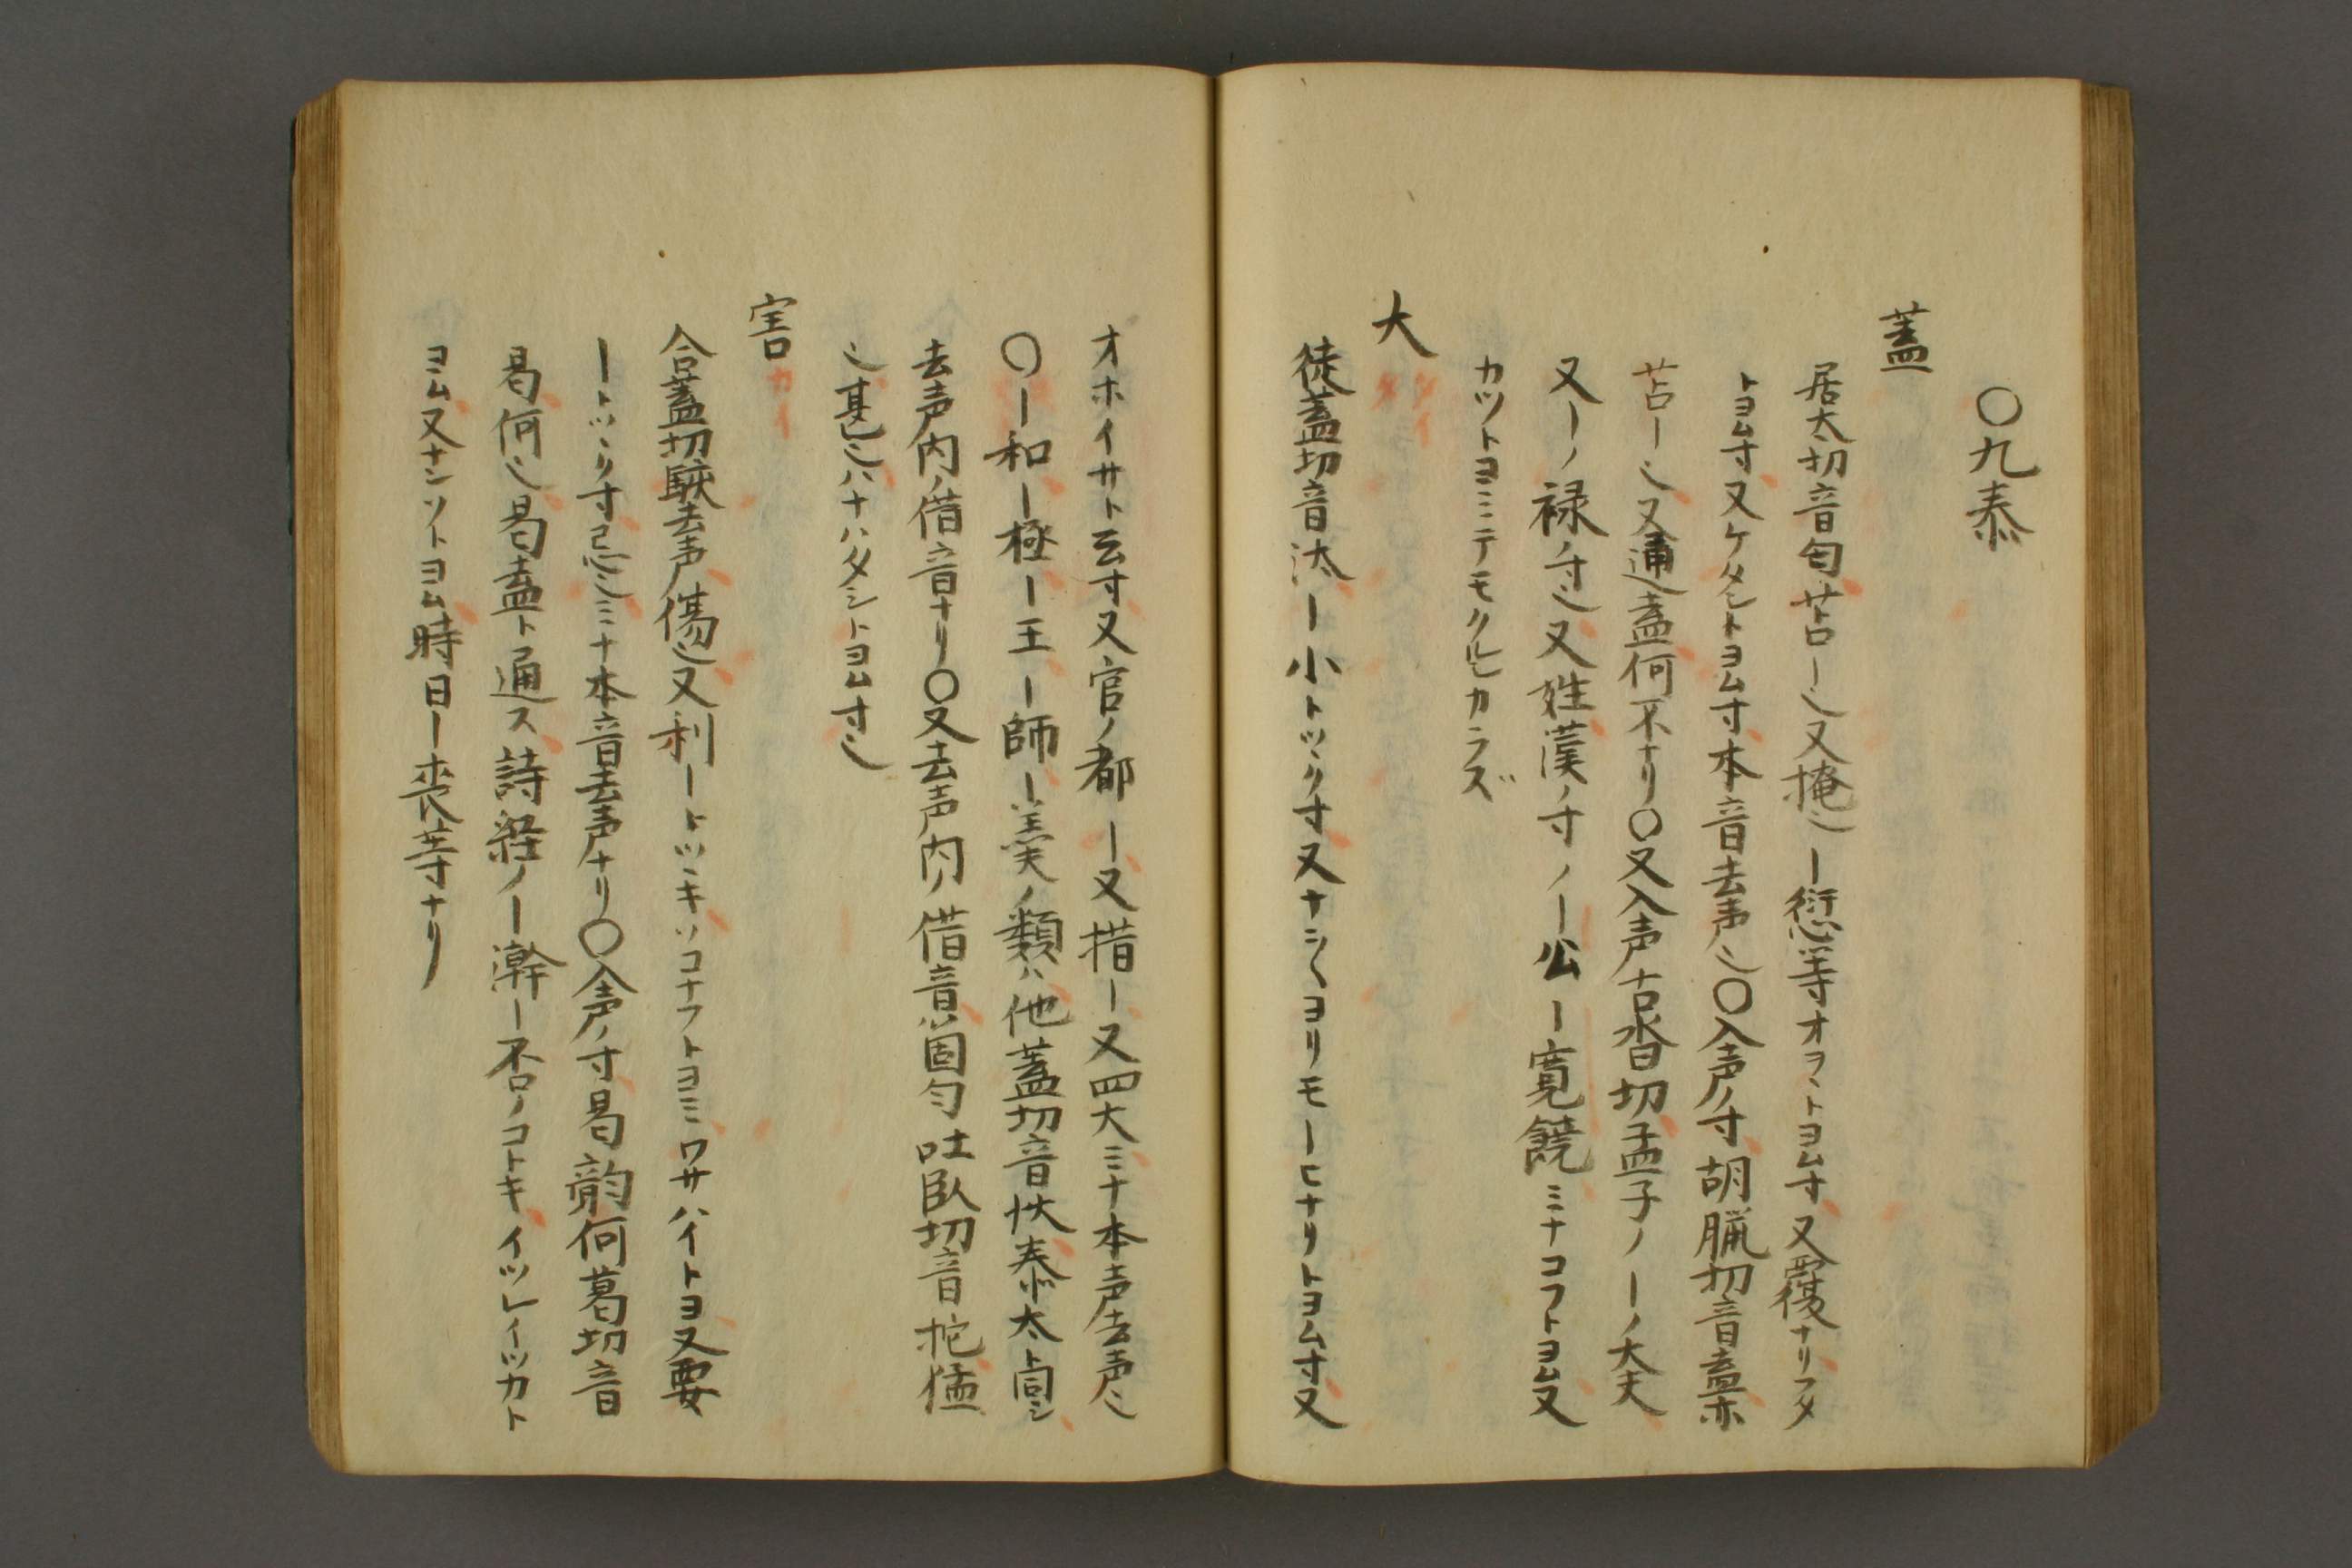 〇九泰
蓋
居太切音匄苫ー也又掩也ー愆等オヲヽトヨム寸又覆ナリフタ
トヨム寸又ケタシトヨム寸本音去声也〇入声ノ寸胡臘切音盍亦
苫ー也又通盍何不ナリ〇又入声古沓切孟子ノーノ大夫
又ーノ禄ノ寸也又姓漢ノ寸ノー公ー寛饒ミナコフトヨム又
カツトヨミニテモクルヒカラズ
大 タイ タ
徒蓋切音汏ー小トツヽク寸又ナニ〱ヨリモーヒナリトヨム寸又
オホイサト云寸又官ノ都ー又措ー又四大ミナ本声去声也
〇ー和ー極ー王ー師ー羹ノ類ハ他蓋切音忕泰太ト同シ
去声内ノ借音ナリ〇又去声内ノ借音箇匀吐臥切音拕猛
也甚也ハナハタシトヨム寸也
害 カイ
合蓋切駭去声傷也又利ートツヽキソコナフトヨミワサハイトヨ又要
ートツヽク寸忌也ミナ本音去声ナリ〇入声ノ寸曷韵何葛切音
曷何也曷盍ト通ス詩経ノー澣ー否ノコトキイツレイツカト
ヨム又ナンソトヨム時日ー喪等ナリ